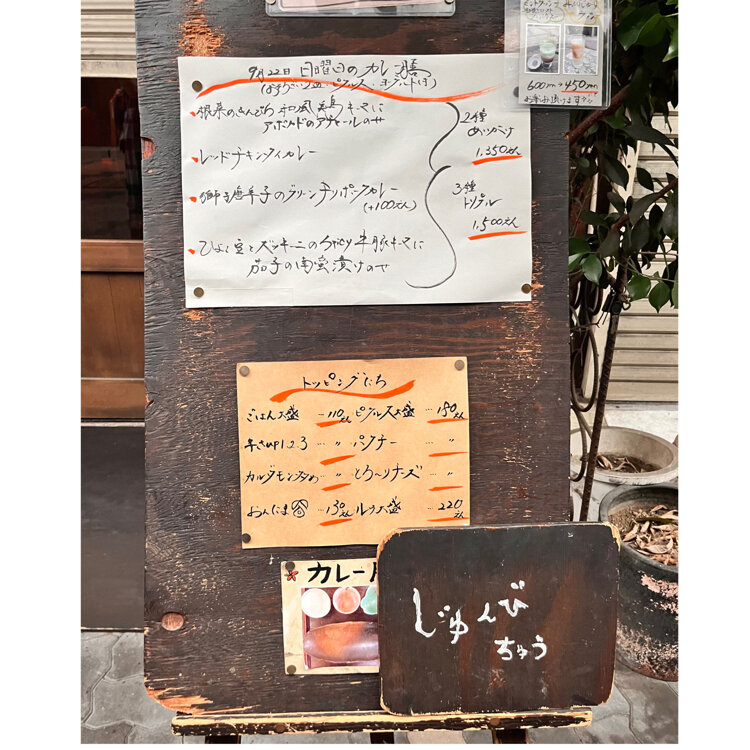 9月22日 日曜日のカレー膳
根菜のきんぴら 和風キーマに
アボカドのアチャールのせ
レッドチキンタイカレー
獅子唐辛子のグリーンチリポークカレー
(+100えん)
ひよこ豆とズッキーニの
牛豚キーマに
茄子の南蛮漬けのせ
2種
あいがけ
1,350えん
3種
トリプル
1,500えん
600yen→450yen
トッピングたち
ごはん大盛 … 110えん
ピクルス大盛 … 180えん
辛さup1.2.3 … 〃
パクチー … 〃
カルダモン多め … 〃
とろ〜りチーズ … 〃
おんたま … 130えん
ルウ大盛 … 220えん
カレー
じゅんび
ちゅう